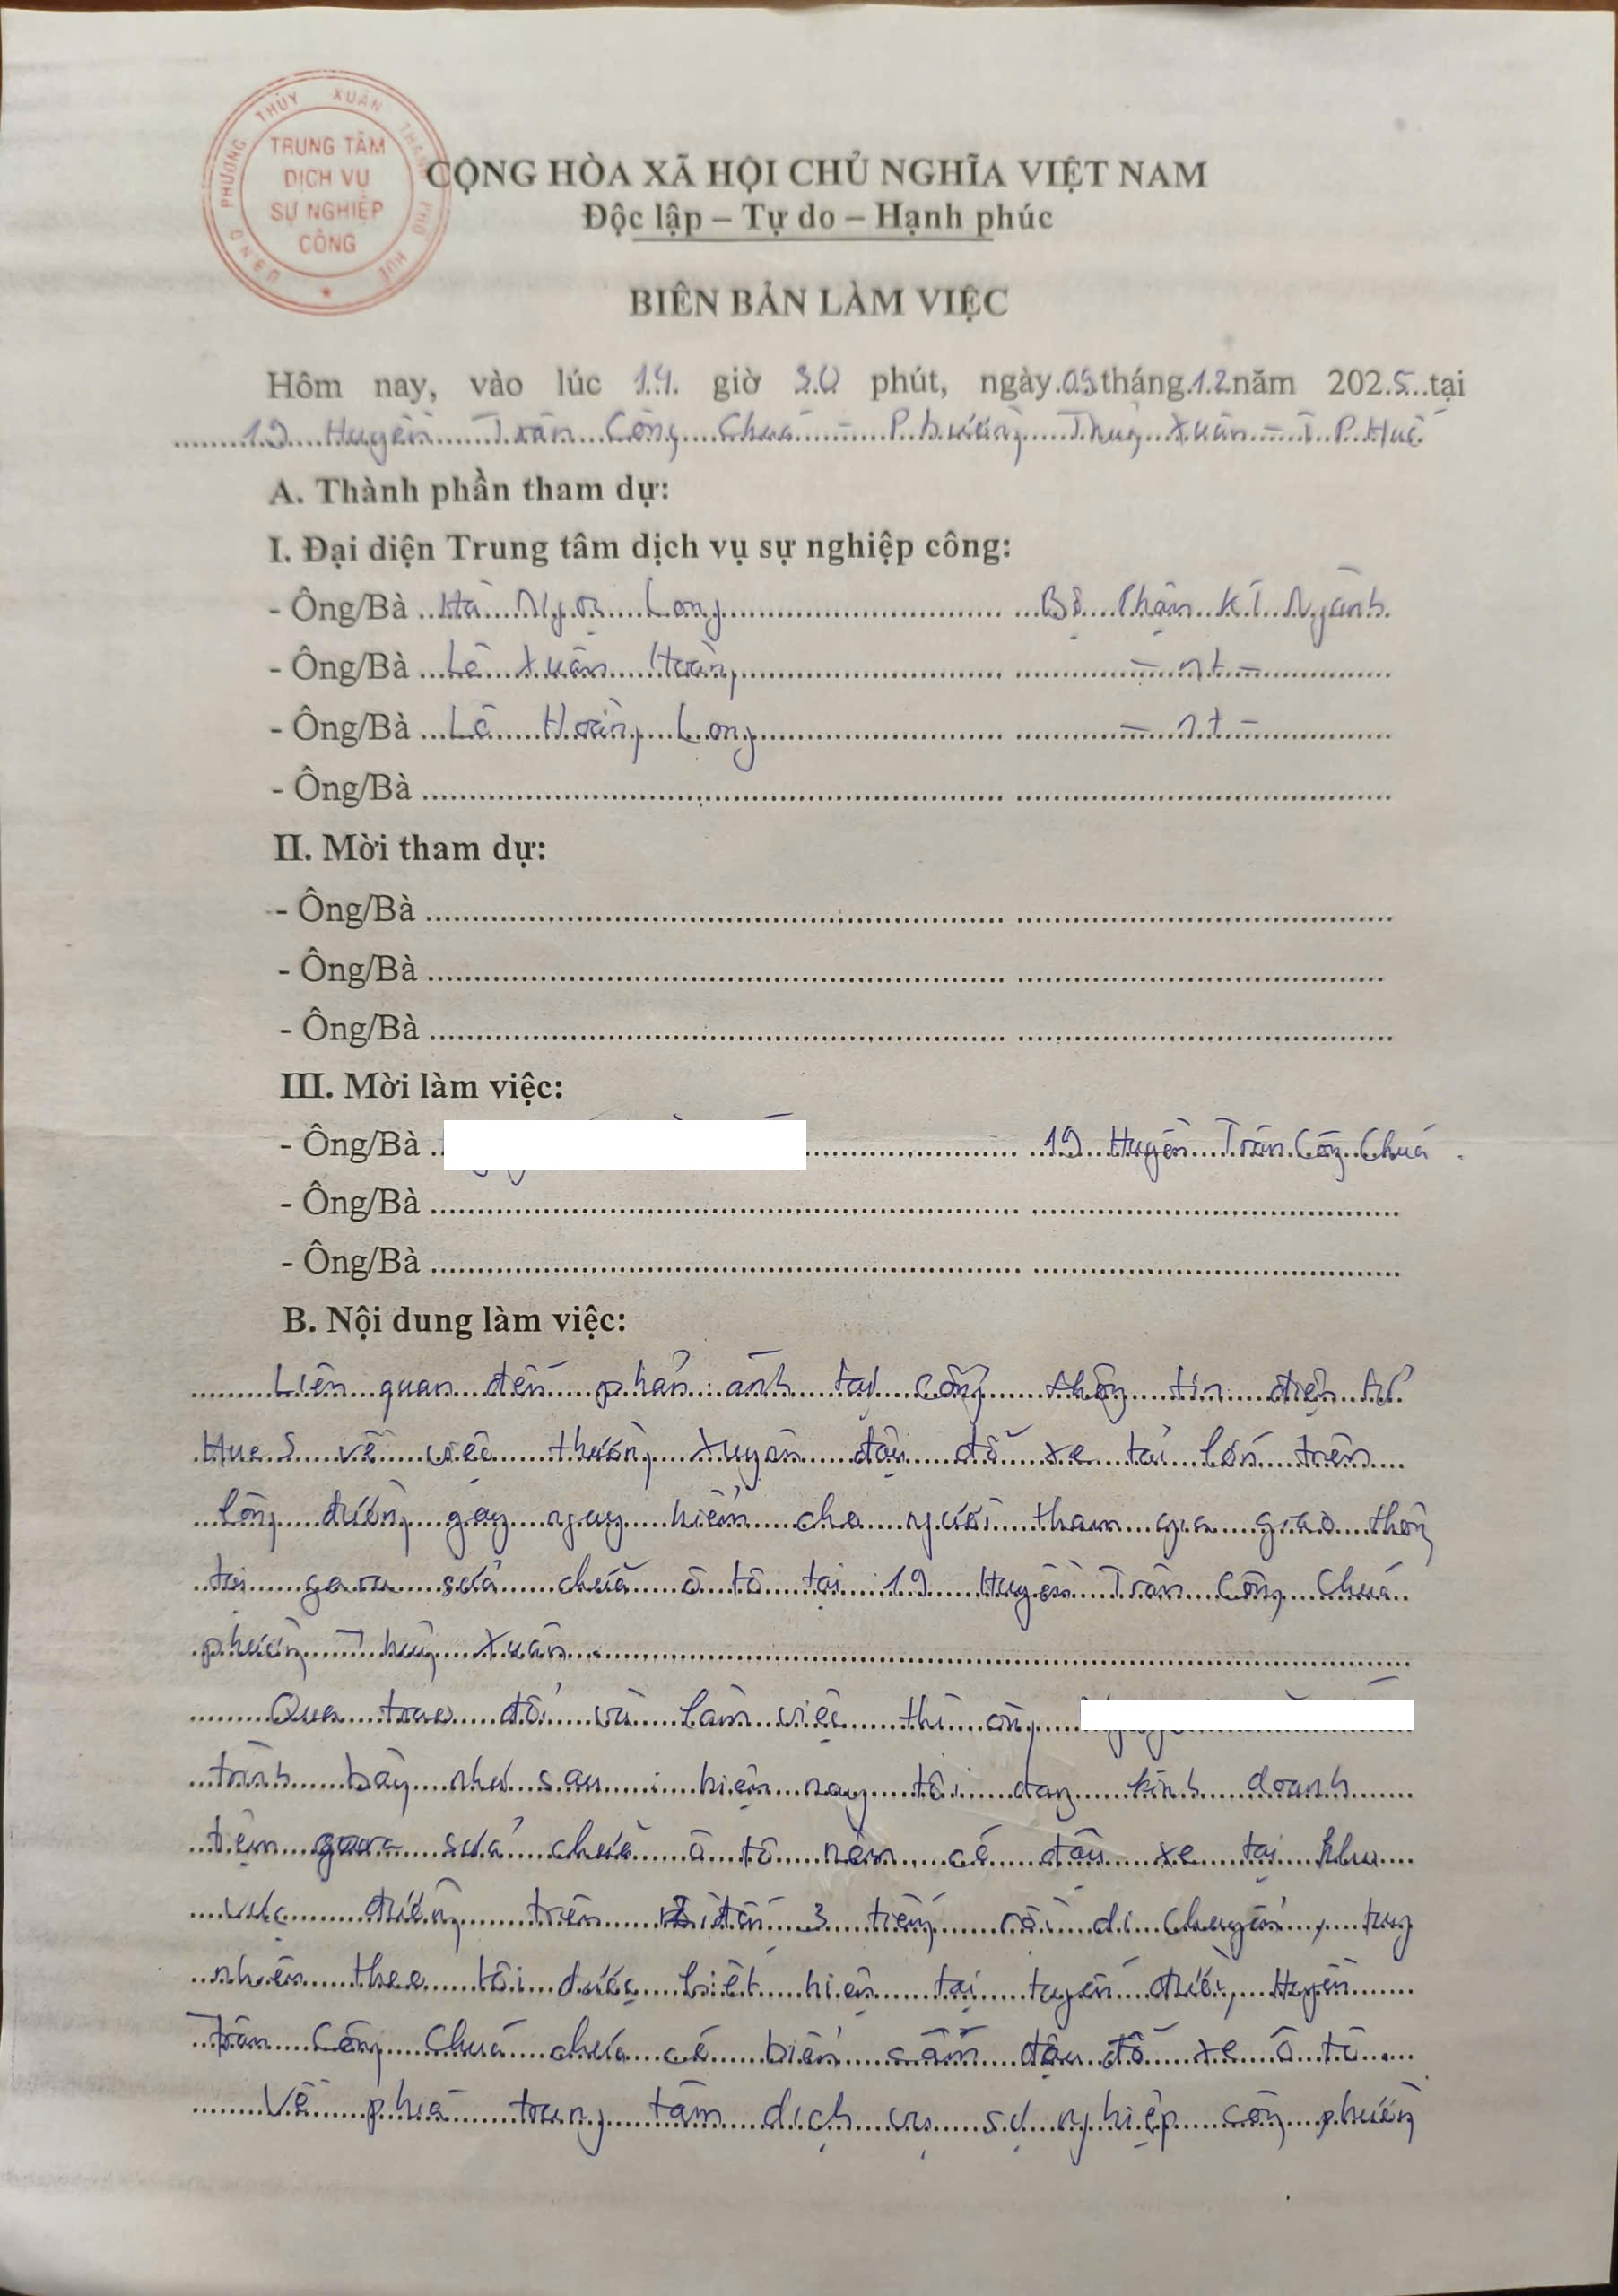 U.B.N.D PHƯỜNG THỦY XUÂN THÀNH PHỐ HUẾ
TRUNG TÂM
DỊCH VỤ
SỰ NGHIỆP
CÔNG
CỘNG HÒA XÃ HỘI CHỦ NGHĨA VIỆT NAM
Độc lập – Tự do – Hạnh phúc
BIÊN BẢN LÀM VIỆC
Hôm nay, vào lúc 14 giờ 30 phút, ngày 09 tháng 12 năm 2025 tại
19 Huyền Trân Công Chúa – Phường Thủy Xuân – T.P Huế
A. Thành phần tham dự:
I. Đại diện Trung tâm dịch vụ sự nghiệp công:
- Ông/Bà Hà Ngọc Long Bộ Phận K.T Ngành
- Ông/Bà Lê Xuân Hoàng – nt –
- Ông/Bà Lê Hoàng Long – nt –
- Ông/Bà
II. Mời tham dự:
- Ông/Bà
- Ông/Bà
- Ông/Bà
III. Mời làm việc:
- Ông/Bà 19 Huyền Trân Công Chúa
- Ông/Bà
- Ông/Bà
B. Nội dung làm việc:
Liên quan đến phản ánh tại cổng thông tin điện tử
Hue S về việc thường xuyên đậu đỗ xe tải lớn trên
lòng đường gây nguy hiểm cho người tham gia giao thông
tại gara sửa chữa ô tô tại 19 Huyền Trân Công Chúa
phường Thủy Xuân
Qua trao đổi và làm việc thì ông
trình bày như sau : hiện nay tôi đang kinh doanh
tiệm gara sửa chữa ô tô nên có đậu xe tại khu
vực đường trên 2 đến 3 tiếng rồi di chuyển, tuy
nhiên theo tôi được biết hiện tại tuyến đường Huyền
Trân Công Chúa chưa có biển cấm đậu đỗ xe ô tô
Về phía trung tâm dịch vụ sự nghiệp công phường